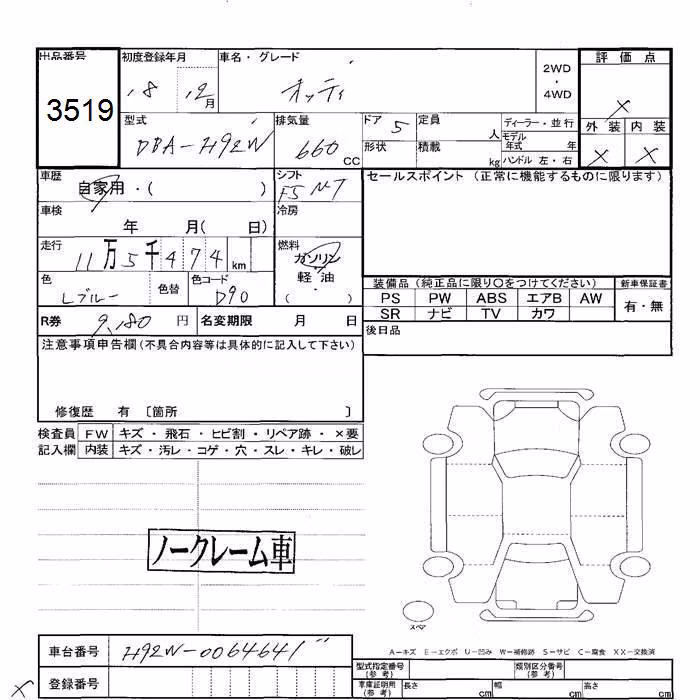 出品番号 初度登録年月 車名・グレード 評価点
3519 18 12月 オッティ 2WD ・ 4WD ×
型式 排気量 ドア 5 定員 人 ディーラー・並行 外装 内装
DBA-H92W 660 CC 形状 積載 kg モデル年式 年 × ×
ハンドル 左・右
車歴 自家用・( ) シフト F5 MT セールスポイント (正常に機能するものに限ります)
車検 年 月( 日) 冷房
走行 11万5千474 km 燃料 ガソリン 軽油 ( )
色 Lブルー 色替 色コード D90
装備品 (純正品に限り〇をつけてください) 新車保証書
PS PW ABS エアB AW 有・無
SR ナビ TV カワ
R券 9,180 円 名変期限 月 日 後日品
注意事項申告欄(不具合内容等は具体的に記入して下さい)
修復歴 有 〔箇所 〕
検査員 FW キズ・飛石・ヒビ割・リペア跡・×要
記入欄 内装 キズ・汚レ・コゲ・穴・スレ・キレ・破レ
ノークレーム車
スペア
A−キズ E−エクボ U−凹み W−補修跡 S−サビ C−腐食 XX−交換済
車台番号 H92W-0064641
型式指定番号(参考) 類別区分番号(参考)
× 登録番号 車庫証明用(参考) 長さ cm 幅 cm 高さ cm